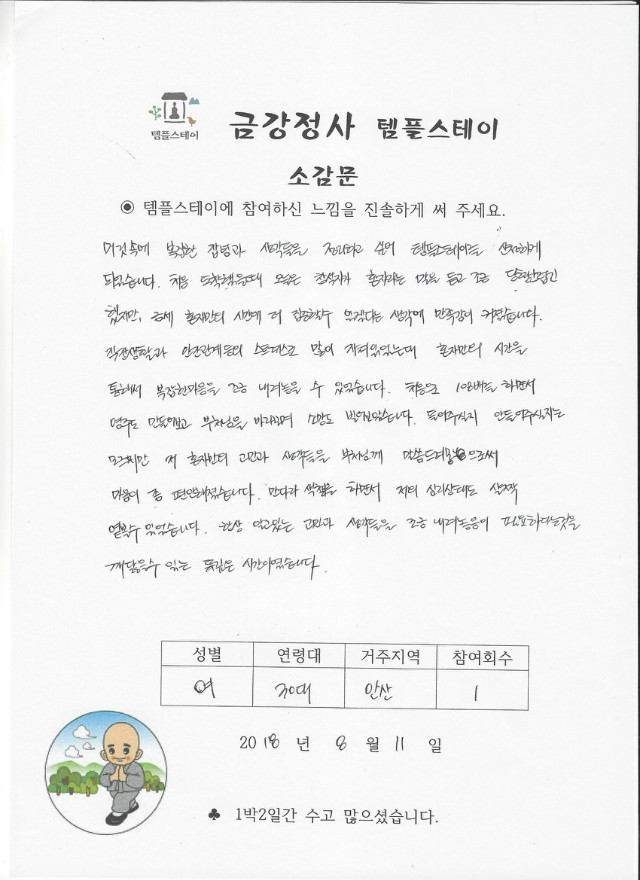 템플스테이
금강정사 템플스테이
소감문
◉ 템플스테이에 참여하신 느낌을 진솔하게 써 주세요.
머릿속에 복잡한 잡념과 생각들을 정리하고 싶어 템플스테이를 신청하게
되었습니다. 처음 도착했을때 오늘은 참석자가 혼자라는 말을 듣고 조금 당황스럽긴
했지만, 금세 혼자만의 시간에 더 집중할수 있겠다는 생각에 만족감이 커졌습니다.
직장생활과 인간관계등의 스트레스로 많이 지쳐있었는데 혼자만의 시간을
통해서 복잡한마음을 조금 내려놓을 수 있었습니다. 처음으로 108배를 하면서
염주도 만들어보고 부처님을 바라보며 소망도 빌어보았습니다. 들어주실지 안들어주실지는
모르지만 저 혼자만의 고민과 생각들을 부처님께 말씀드려봄으로써
마음이 좀 편안해졌습니다. 만다라 색칠을 하면서 저의 심리상태도 살짝
엿볼수 있었습니다. 항상 안고있는 고민과 생각들을 조금 내려놓음이 필요하다는것을
깨달을수 있는 뜻깊은 시간이었습니다.
성별 연령대 거주지역 참여회수
여 30대 안산 1
2018 년 8 월 11 일
♣ 1박2일간 수고 많으셨습니다.